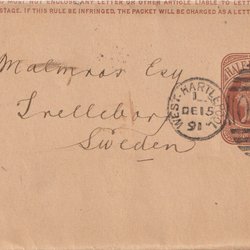 MUST NOT ENCLOSE ANY LETTER OR COMMUNICATION OF THE NATURE OF A LETTER
POSTAGE. IF THIS RULE BE INFRINGED, THE PACKET WILL BE CHARGED AS A LETTER
HALF
Malmros Esq
Trelleborg
Sweden
WEST-HARTLEPOOL
L
DE 15
91